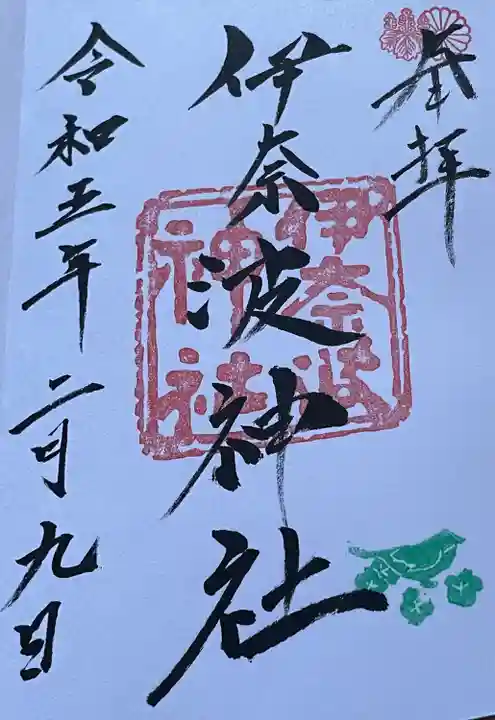 奉拝
伊奈波神社
伊奈波
神社
令和五年二月九日